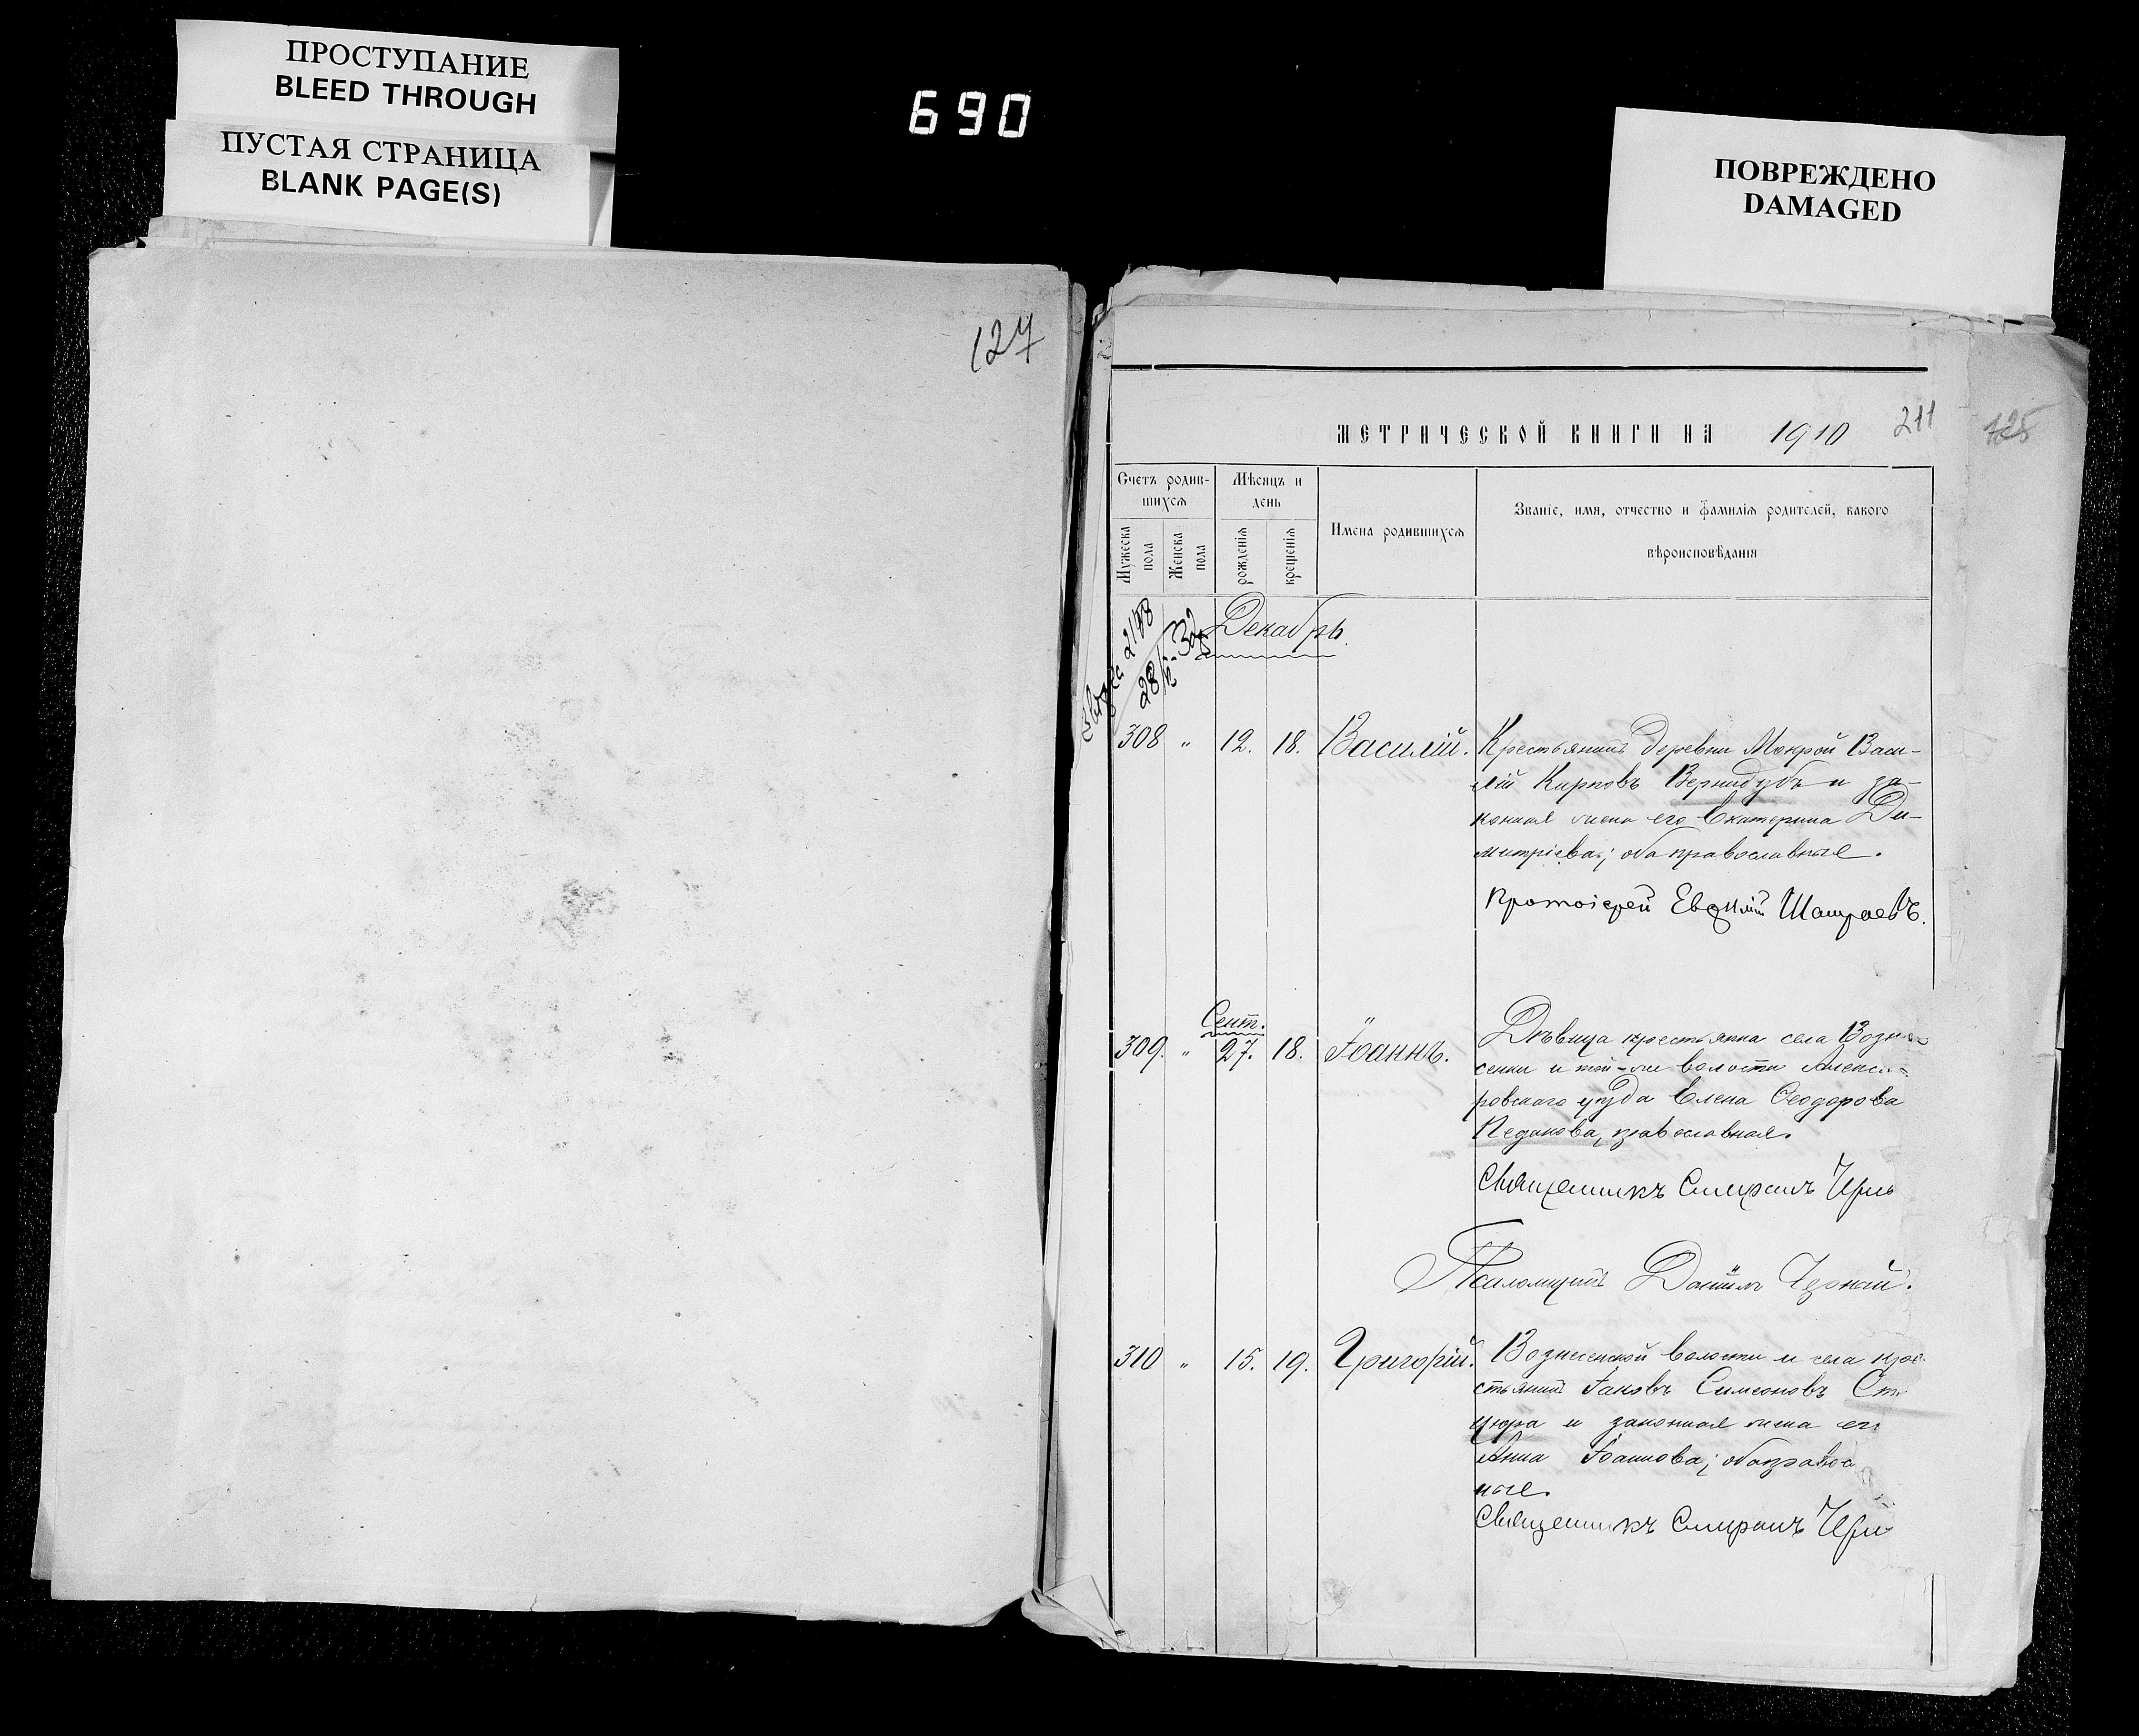 ПРОСТУПАНИЕ
BLEED THROUGH
ПУСТАЯ СТРАНИЦА
BLANK PAGE(S)
690
ПОВРЕЖДЕНО
DAMAGED
127
МЕТРИЧЕСКОЙ КНИГИ НА 1910
211
125
Счетъ родив-
шихся
Мѣсяцъ и
день
Имена родившихся
Званіе, имя, отчество и фамилія родителей, какого
вѣроисповѣданія
Мужеска
пола
Женска
пола
рожденія
крещенія
Декабрь.
308 " 12. 18. Василій. Крестьянинъ деревни Мокрой Васи-
лій Карповъ Вернидубъ и за-
конная жена его Екатерина Ди-
митріева; оба православные.
Протоіерей Евѳимій
Сент.
309. " 27. 18. Іоаннъ. Дѣвица крестьянка села Возне
сенки и той-же волости Алекса
ровскаго уѣзда Елена Ѳеодорова
Педакова, православная.
Священникъ Спиридонъ
Псаломщикъ Даніилъ Черный.
310 " 15. 19. Григорій. Вознесенской волости и села кре
стьянинъ Іаковъ Симеоновъ Ст
цюра и законная жена его
Анна Іоаннова; оба правос
ные.
Священникъ Спиридонъ